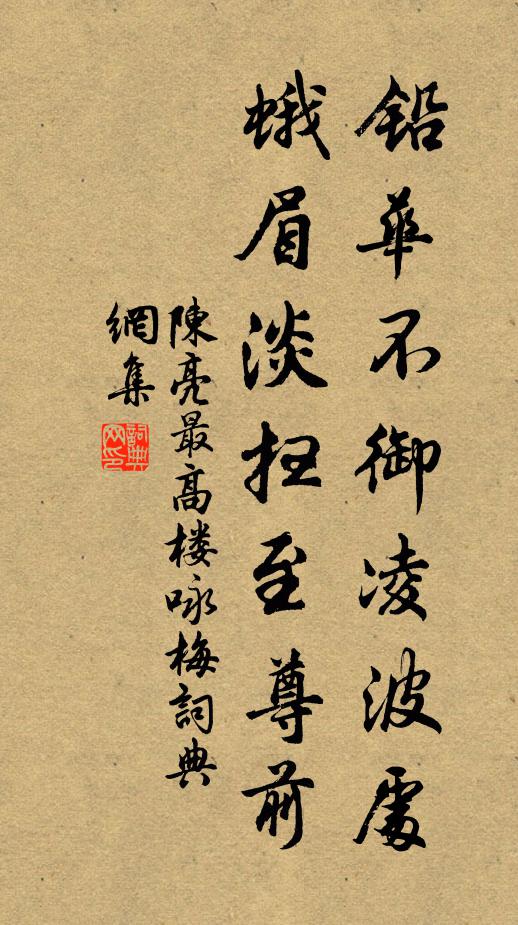 鉛華不御凌波處
蛾眉淡扫至尊前
陳亮最高楼咏梅詞典
網集
詞典
网印